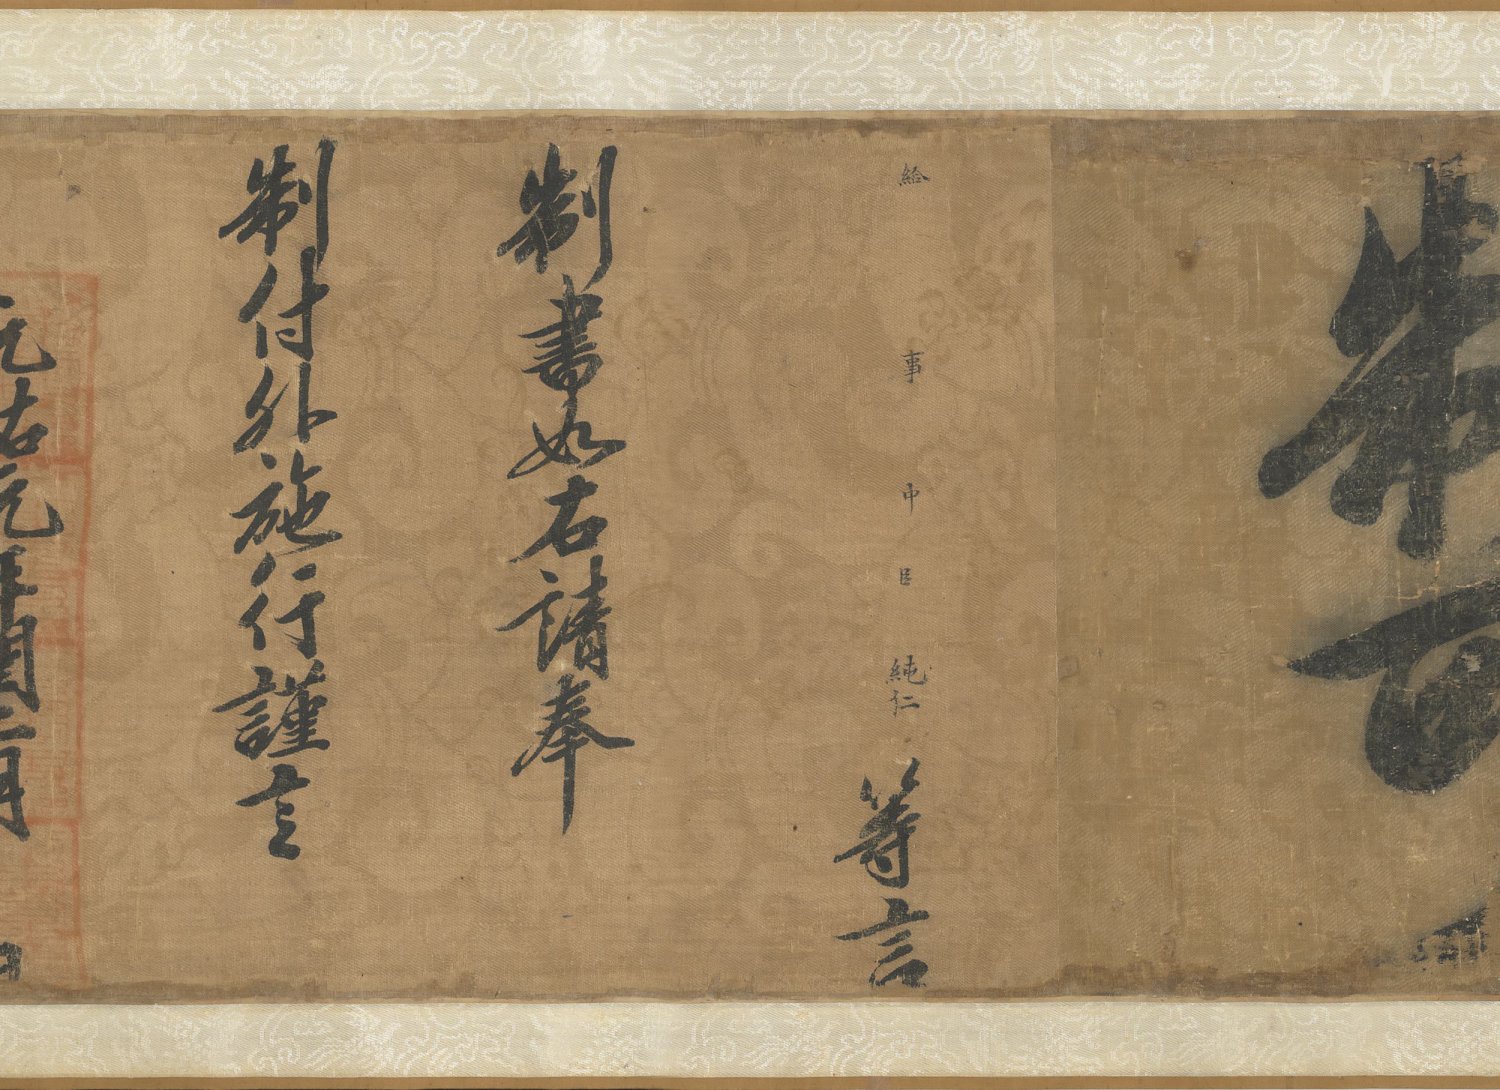 給事中臣純仁等言
制書如右請奉
制付外施行謹言
元祐元年閏二月 日